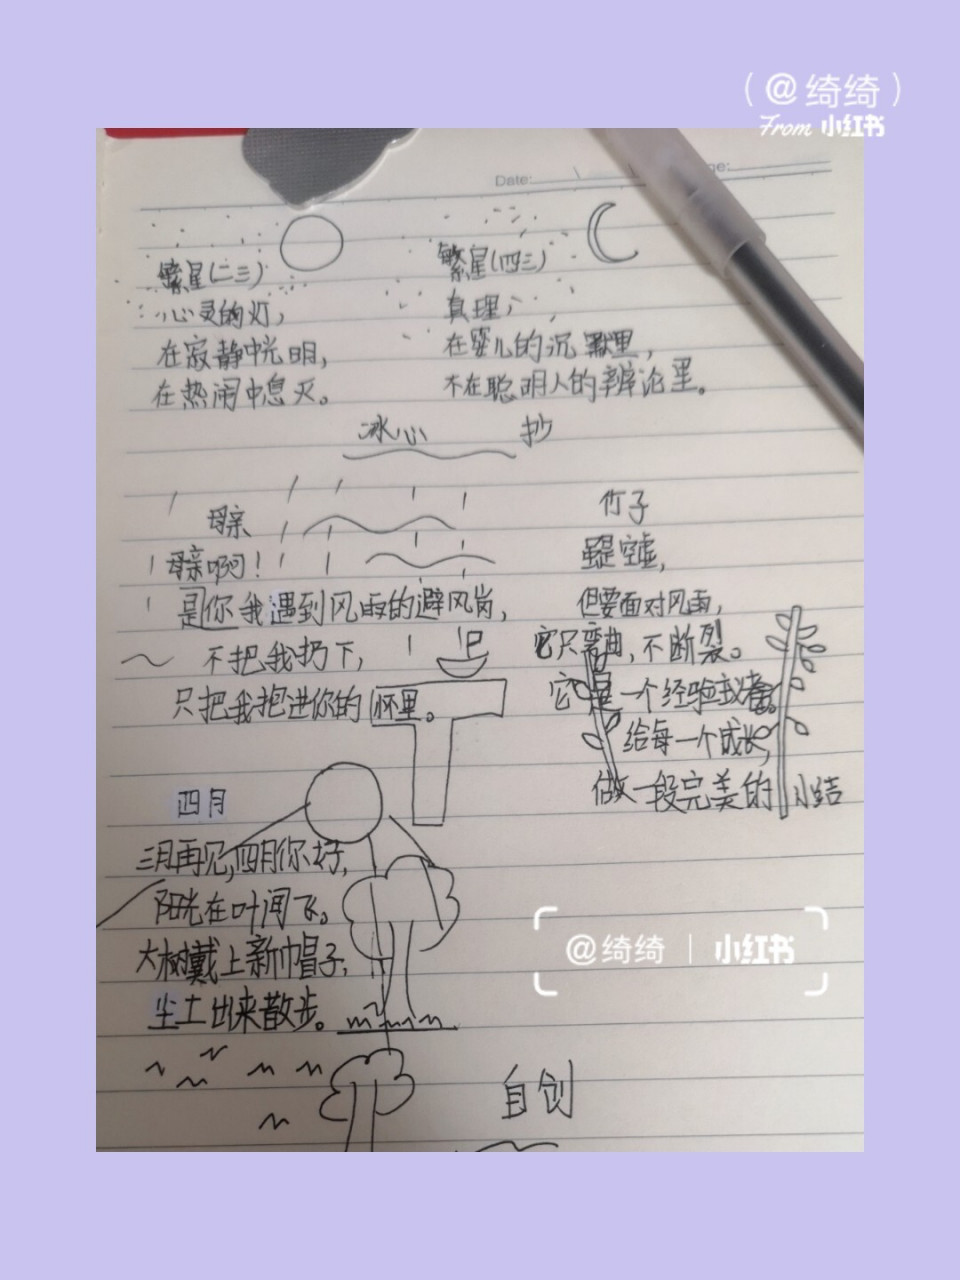 (@绮绮)
From 小红书
Date:
ge:
繁星(二三)
心灵的灯,
在寂静中光明,
在热闹中息灭。
繁星(四三)
真理,
在婴儿的沉默里,
不在聪明人的辩论里。
冰心 抄
母亲
母亲啊!
是你我遇到风雨的避风岗,
不把我扔下,
只把我抱进你的怀里。
竹子
虽是空虚,
但要面对风雨,
它只弯曲,不断裂。
它是一个经验
给每一个成长,
做一段完美的小结
四月
三月再见,四月你好,
阳光在叶间飞。
大树戴上新巾帽子,
尘土出来散步。
@绮绮 | 小红书
自创